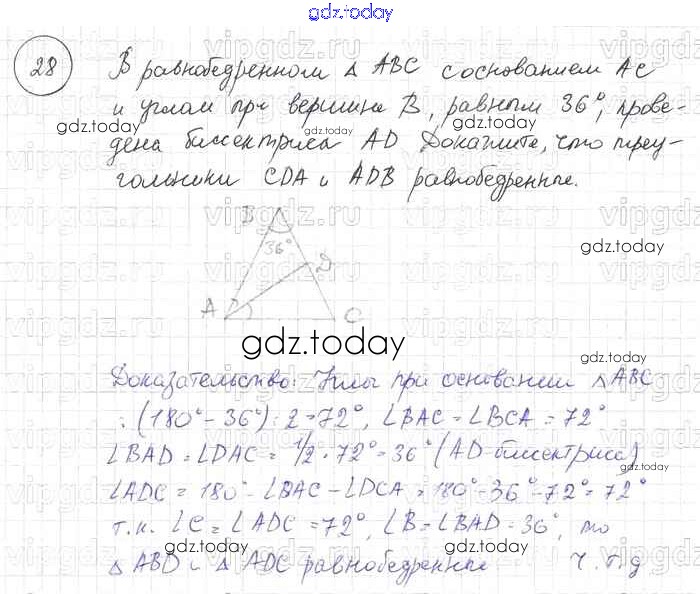 gdz.today
28
В равнобедренном △ ABC с основанием AC
и углом при вершине B, равным 36°, прове-
gdz.today
gdz.today
дена биссектриса AD Докажите, что треу-
гольники CDA и ADB равнобедренные.
vipgdz.ru
vipgdz.ru
B
36°
D
gdz.today
A
C
gdz.today
Доказательство: Углы при основании △ABC
: (180° - 36°) : 2 = 72°, ∠BAC = ∠BCA = 72°
∠BAD = ∠DAC = 1/2 · 72° = 36° (AD-биссектриса)
∠ADC = 180° - ∠BAC - ∠DCA = 180° - 36° - 72° = 72°
т.к. ∠C = ∠ADC = 72°, ∠B = ∠BAD = 36°, то
gdz.today
gdz.today
△ ABD и △ ADC равнобедренные ч.т.д